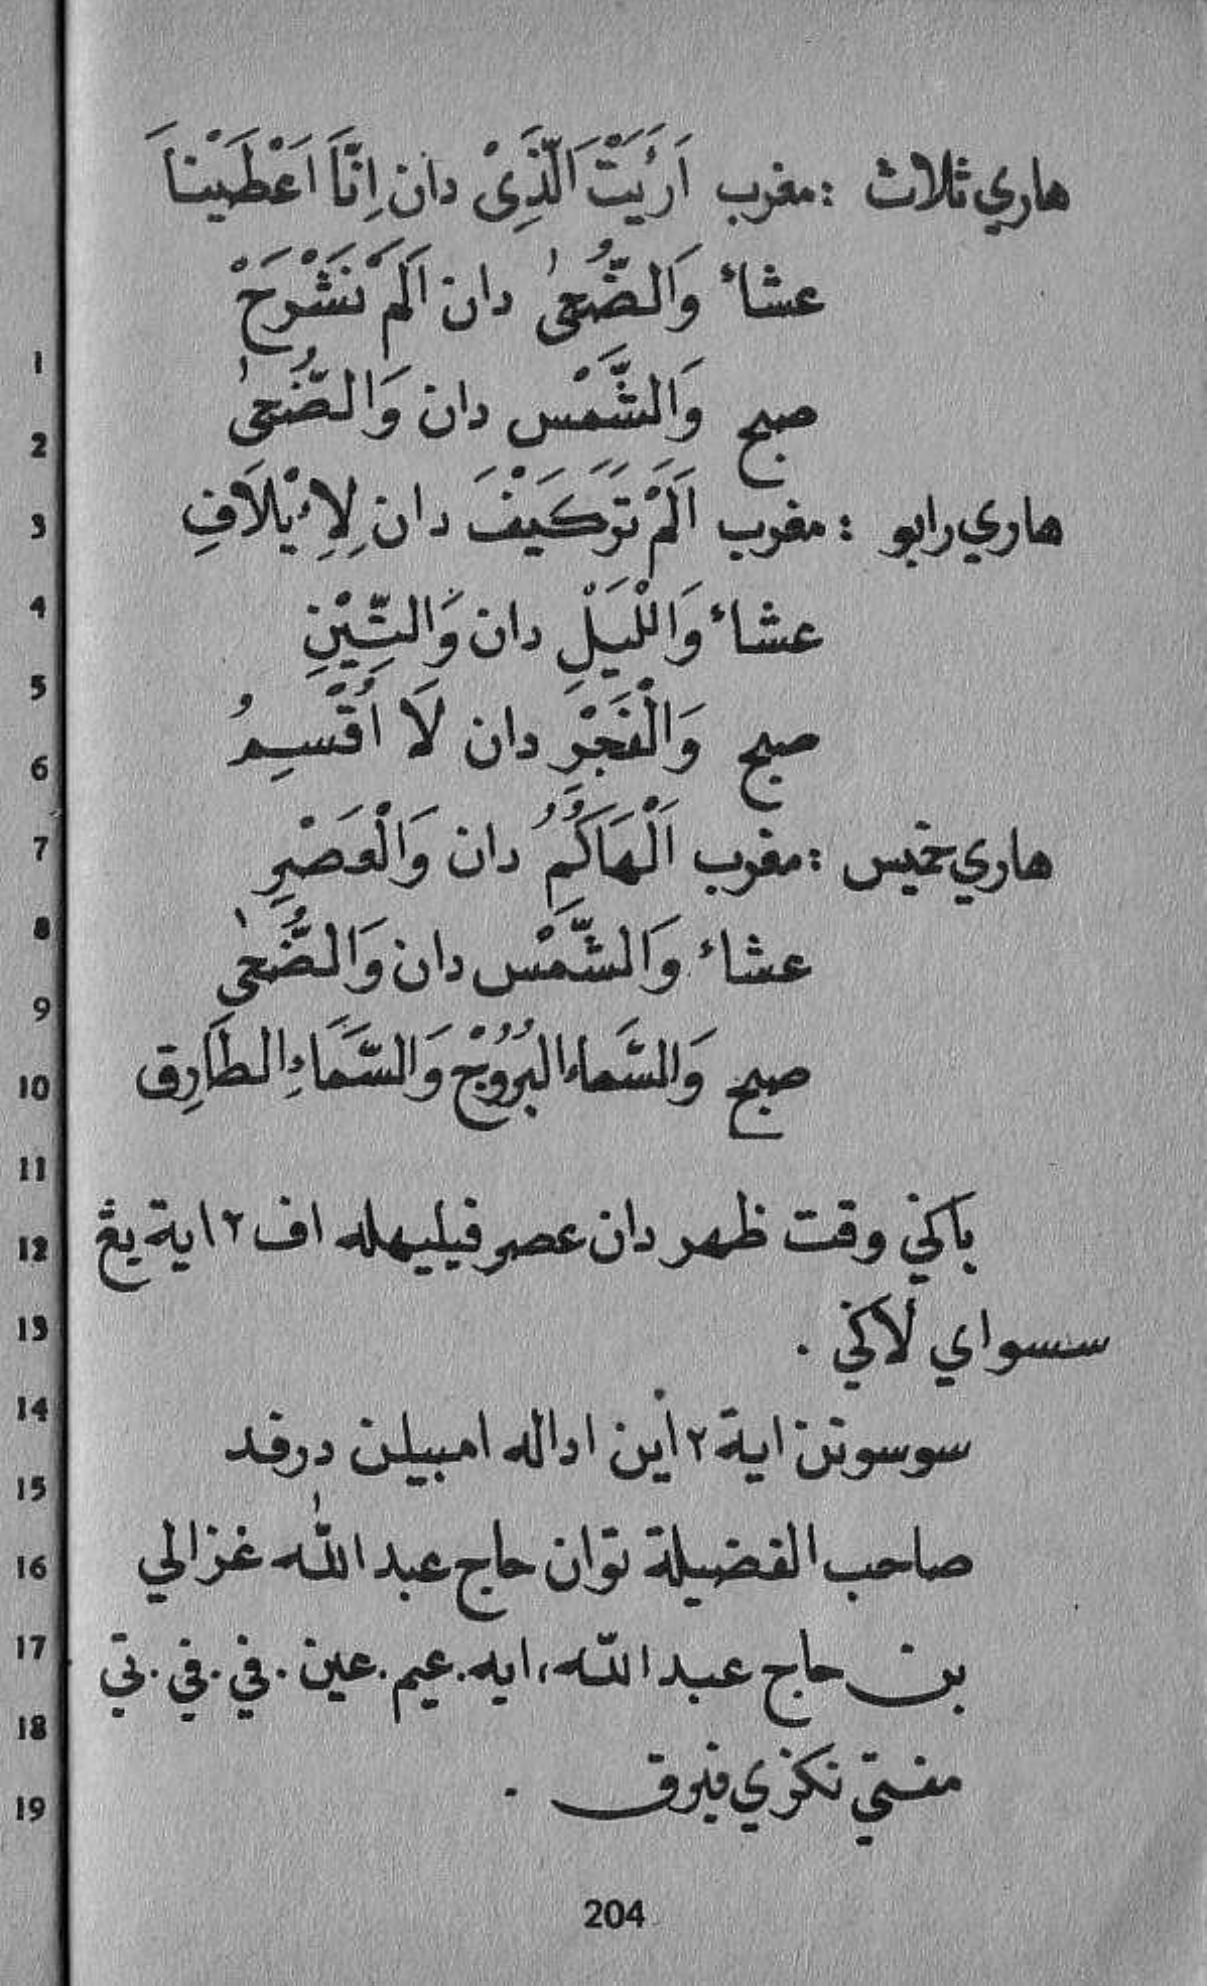 هاري ثلاث : مغرب اَرَأَيْتَ الَّذِىْ دان اِنَّا اَعْطَيْنَا
عشاء وَالضُّحىٰ دان اَلَمْ نَشْرَحْ
صبح وَالشَّمْس دان وَالضُّحىٰ
هاري رابو : مغرب اَلَمْ تَرَكَيْفَ دان لِاِيْلَافِ
عشاء وَاللَّيْلِ دان وَالتِّيْنِ
صبح وَالْفَجْرِ دان لَا اُقْسِمُ
هاري خميس : مغرب اَلْهَاكُمُ دان وَالْعَصْرِ
عشاء وَالشَّمْس دان وَالضُّحىٰ
صبح وَالسَّماء البُرُوْجْ وَالسَّمَاءِ الطَارِق
باݢي وقت ظهر دان عصر ڤيليهله اڤ٢ اية يڠ
سسواي لاݢي .
سوسونن اية٢ اين اداله امبيلن درڤد
صاحب الفضيلة توان حاج عبد اللّٰه غزالي
بن حاج عبد اللّه، ايه. عيم. عين. ڤي. ڤي. تي
مفتي نݢري ڤيرق .
204
1
2
3
4
5
6
7
8
9
10
11
12
13
14
15
16
17
18
19